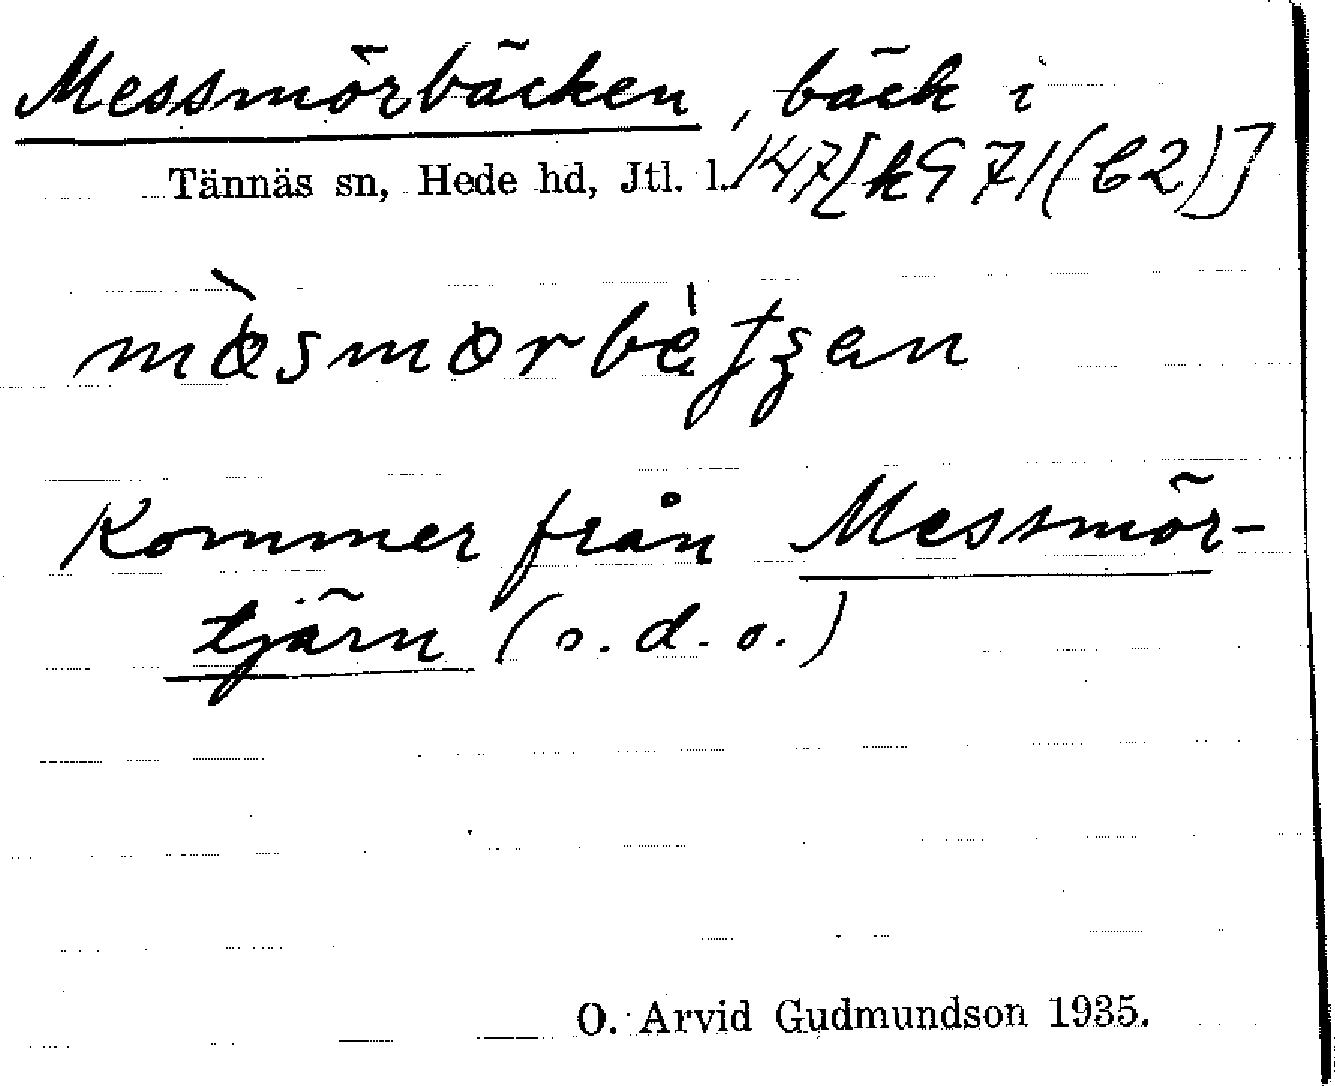 Messmörbäcken, bäck i
Tännäs sn, Hede hd, Jtl. l. 147[k971(C2)]
Kommer från Messmör-
tjärn (s.d.o.)
O. Arvid Gudmundson 1935.